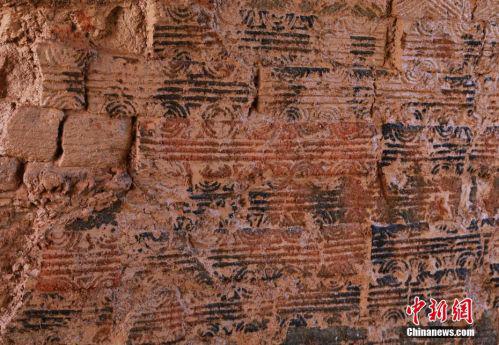 中新网
WWW.
CHINANEWS.COM